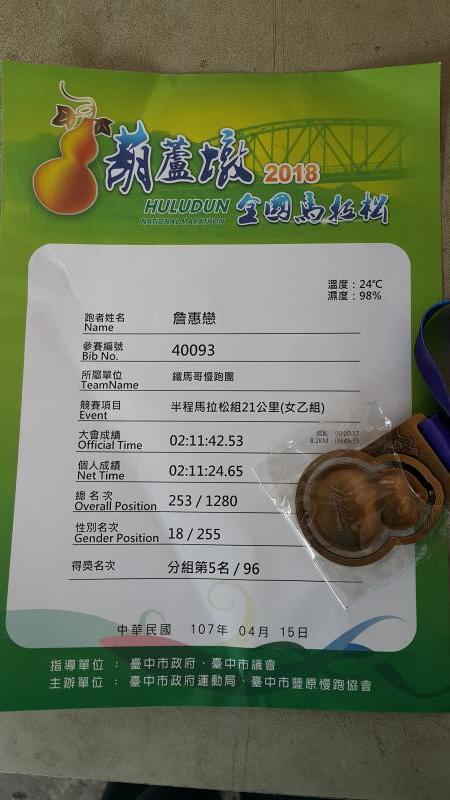 葫蘆墩 2018
HULUDUN 全國馬拉松
NATIONAL MARATHON
溫度：24℃
濕度：98%
跑者姓名 詹惠戀
Name
參賽編號 40093
Bib No.
所屬單位 鐵馬哥慢跑團
TeamName
競賽項目 半程馬拉松組21公里(女乙組)
Event
大會成績 02:11:42.53
Official Time
個人成績 02:11:24.65
Net Time
總名次 253 / 1280
Overall Position
性別名次 18 / 255
Gender Position
得獎名次 分組第5名 / 96
8.2KM
中華民國 107年 04月 15日
指導單位 ： 臺中市政府、臺中市議會
主辦單位 ： 臺中市政府運動局、臺中市豐原慢跑協會